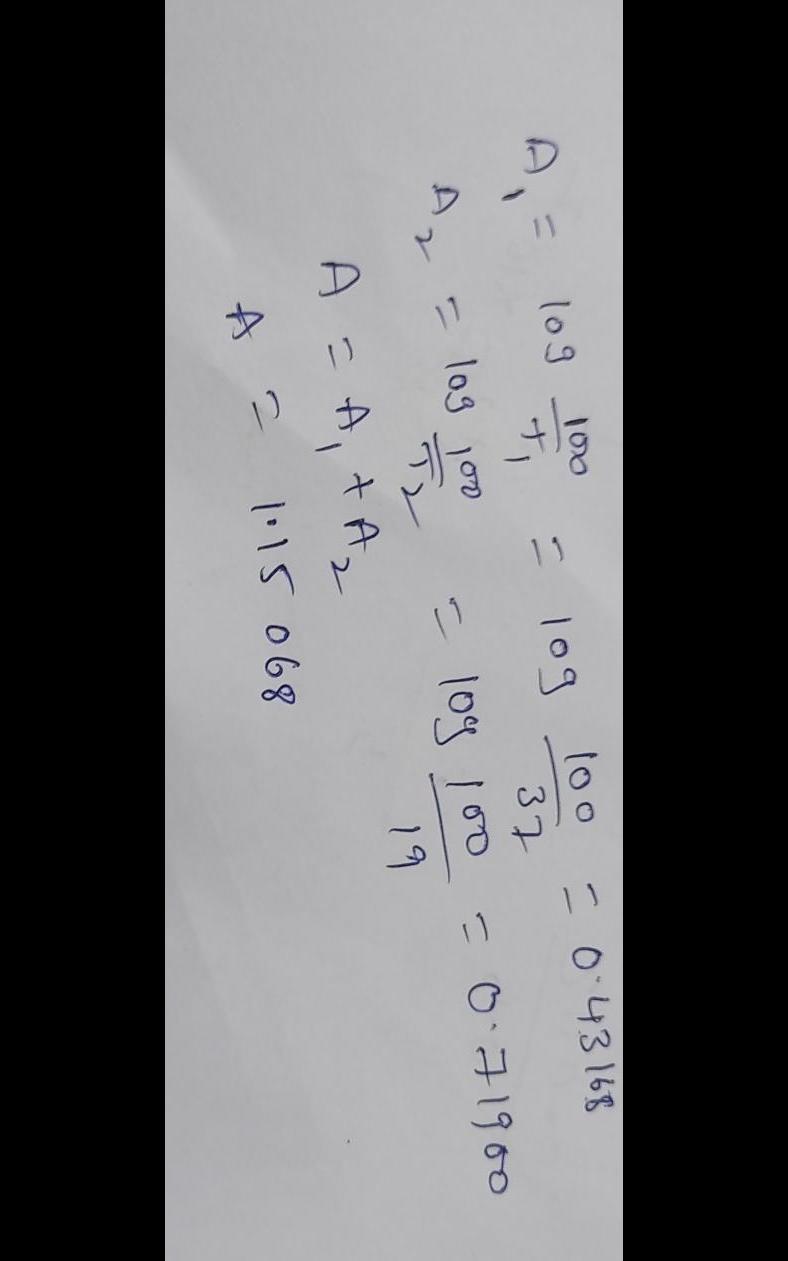 A₁ = log 100/T₁ = log 100/37 = 0.43168
A₂ = log 100/T₂ = log 100/19 = 0.71900
A = A₁ + A₂
A = 1.15068